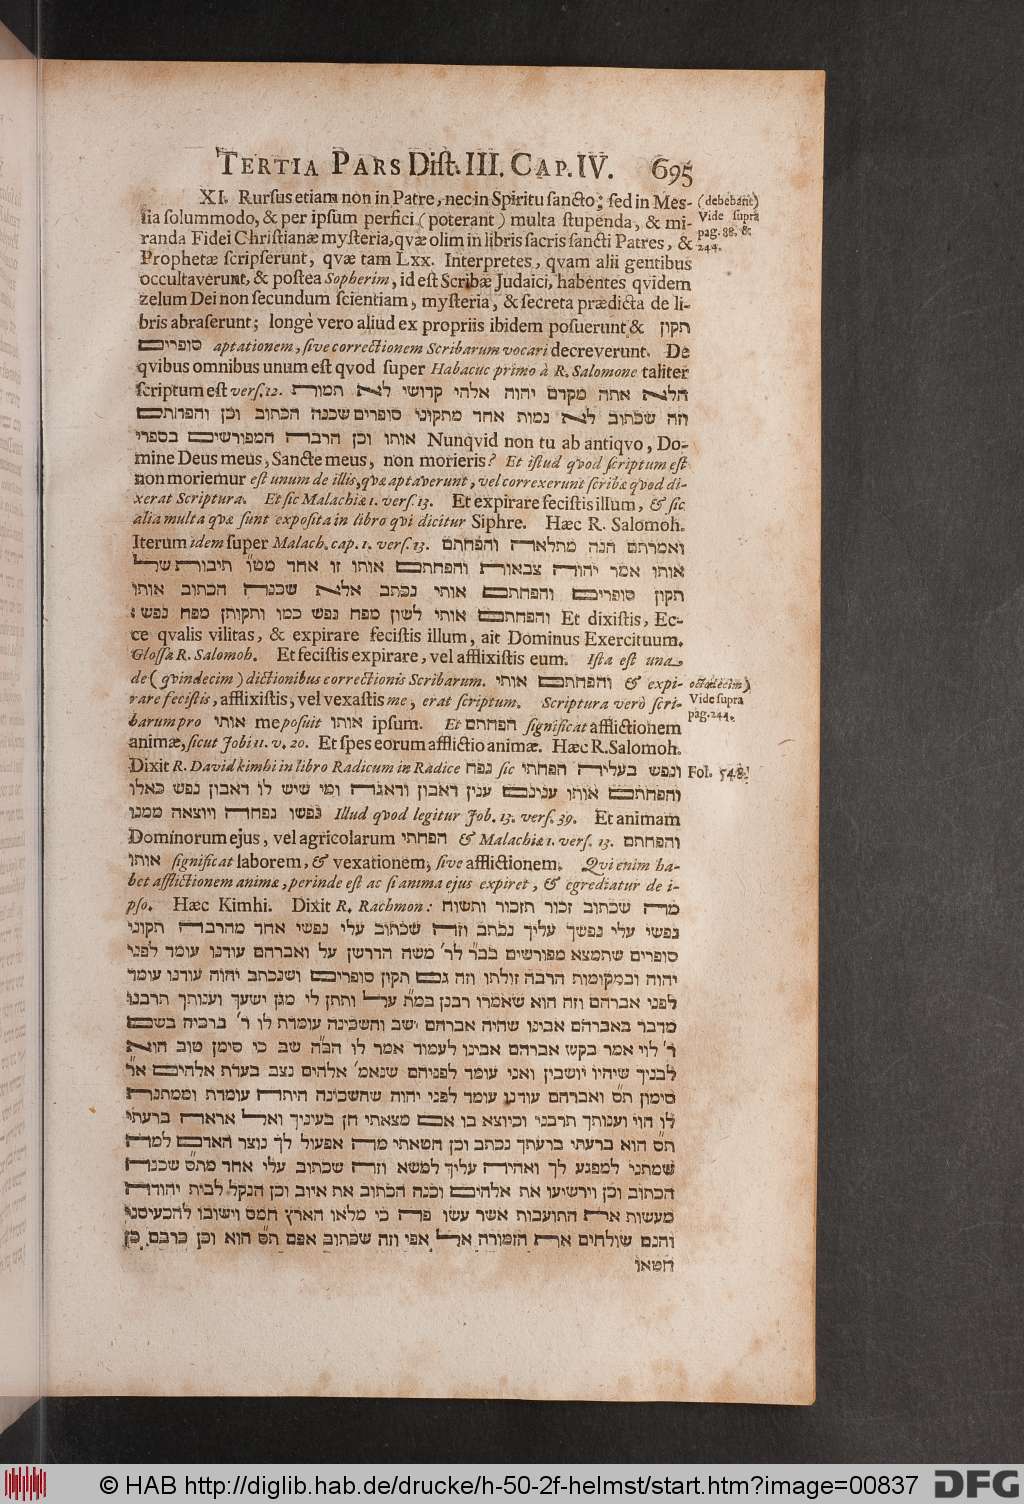 TERTIA PARS Dist. III. CAP. IV. 695
XI. Rursus etiam non in Patre, nec in Spiritu sancto; sed in Mes-
sia solummodo, & per ipsum perfici (poterant) multa stupenda, & mi-
randa Fidei Christianæ mysteria, qvæ olim in libris sacris sancti Patres, &
Prophetæ scripserunt, qvæ tam Lxx. Interpretes, qvam alii gentibus
occultaverunt, & postea Sopherim, id est Scribæ Judaici, habentes qvidem
zelum Dei non secundum scientiam, mysteria, & secreta prædicta de li-
bris abraserunt; longè vero aliud ex propriis ibidem posuerunt & תקון
סופרים aptationem, sive correctionem Scribarum vocari decreverunt. De
qvibus omnibus unum est qvod super Habacuc primo à R. Salomone taliter
scriptum est vers. 12. הלא אתה מקדם יהוה אלהי קדושי לא תמות
וזה שכתוב לא נמות אחד מתקוני סופרים שכנה הכתוב וכן והפחתם
אותו וכן הרבה המפורשים בספרי Nunqvid non tu ab antiqvo, Do-
mine Deus meus, Sancte meus, non morieris? Et istud qvod scriptum est
non moriemur est unum de illis, qvæ aptaverunt, vel correxerunt scribæ qvod di-
xerat Scriptura. Et sic Malachiæ 1. vers. 13. Et expirare fecistis illum, & sic
alia multa qvæ sunt exposita in libro qvi dicitur Siphre. Hæc R. Salomoh.
Iterum idem super Malach. cap. 1. vers. 13. ואמרתם הנה מתלאה והפחתם
אותו אמר יהוה צבאות והפחתם אותו זו אחד מט״ו תיבות של
תקון סופרים והפחתם אותי נכתב אלא שכנה הכתוב אותו
והפחתם אותי לשון מפח נפש כמו ותקותן מפח נפש: Et dixistis, Ec-
ce qvalis vilitas, & expirare fecistis illum, ait Dominus Exercituum.
Glossa R. Salomoh. Et fecistis expirare, vel afflixistis eum. Ista est una
de (qvindecim) dictionibus correctionis Scribarum. והפחתם אותי & expi-
rare fecistis, afflixistis, vel vexastis me, erat scriptum. Scriptura verò scri-
barum pro אותי me posuit אותו ipsum. Et הפחתם significat afflictionem
animæ, sicut Jobi 11. v. 20. Et spes eorum afflictio animæ. Hæc R. Salomoh.
Dixit R. David kimhi in libro Radicum in Radice נפח sic ונפש בעליה הפחתי
והפחתם אותו ענינם ענין דאבון ודאגה ומי שיש לו דאבון נפש כאלו
נפשו נפחה ויוצאה ממנו Illud qvod legitur Job. 13. vers. 39. Et animam
Dominorum ejus, vel agricolarum הפחתי & Malachiæ 1. vers. 13. והפחתם
אותו significat laborem, & vexationem, sive afflictionem. Qvi enim ha-
bet afflictionem animæ, perinde est ac si anima ejus expiret, & egrediatur de i-
pso. Hæc Kimhi. Dixit R. Rachmon: מה שכתוב זכור תזכור ותשוח
נפשי עלי נפשך עליך נכתב וזה שכתוב עלי נפשי אחד מהרבה תקוני
סופרים שתמצא מפורשים בב״ר לר׳ משה הדרשן על ואברהם עודנו עומד לפני
יהוה ובמקומות הרבה זולתו וזה גם תקון סופרים ושנכתב יהוה עודנו עומד
לפני אברהם וזה הוא שאמרו רבנן במ״ת על ותתן לי מגן ישעך וענותך תרבנו
מדבר באברהם אבינו שהיה אברהם יושב והשכינה עומדת לו ר׳ ברכיה בשם
ר׳ לוי אמר בקש אברהם אבינו לעמוד אמר לו הב״ה שב כי סימן טוב הוא
לבניך שיהיו יושבין ואני עומד לפניהם שנאמ׳ אלהים נצב בעדת אלהים א״ר
סימון ת״ס ואברהם עודנו עומד לפני יהוה שהשכינה היתה עומדת וממתנת
לו הוי וענותך תרבני וכיוצא בו אם מצאתי חן בעיניך ואל אראה ברעתי
ת״ס הוא ברעתי ברעתך נכתב וכן חטאתי מה אפעול לך נוצר האדם למה
שמתני למפגע לך ואהיה עליך למשא וזה שכתוב עלי אחד מת״ס שכנה
הכתוב וכן וירשיעו את אלהים וכנה הכתוב את איוב וכן הנקל לבית יהודה
מעשות את התועבות אשר עשו פה כי מלאו הארץ חמס וישובו להכעיסני
והנם שולחים את הזמורה אל אפי וזה שכתוב אפם ת״ס הוא וכן כרבם כן
חטאו
(debebant)
Vide supra
pag. 88. &
244.
octodecim)
Vide supra
pag. 244.
Fol. 548.
© HAB http://diglib.hab.de/drucke/h-50-2f-helmst/start.htm?image=00837
DFG